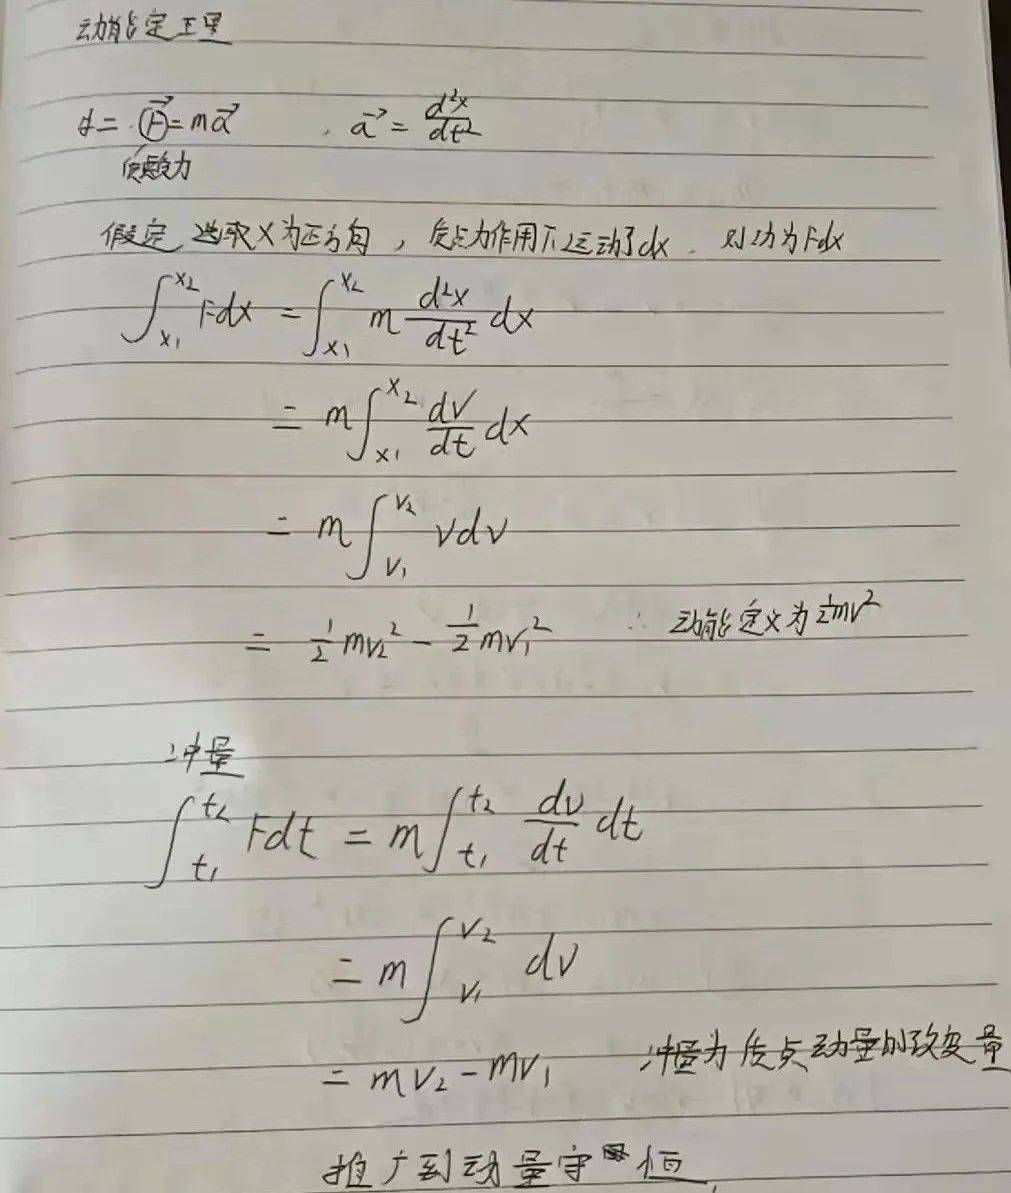 动能定理
牛二 F⃗=ma⃗ , a⃗ = d²x/dt²
质点受力
假定 选取x为正方向，质点力作用下运动了dx. 则功为Fdx
∫_{x₁}^{x₂} Fdx = ∫_{x₁}^{x₂} m d²x/dt² dx
= m∫_{x₁}^{x₂} dv/dt dx
= m∫_{v₁}^{v₂} vdv
= 1/2 mv₂² - 1/2 mv₁² ∴ 动能定义为 1/2 mv²
冲量
∫_{t₁}^{t₂} Fdt = m∫_{t₁}^{t₂} dv/dt dt
= m∫_{v₁}^{v₂} dv
= mv₂ - mv₁ 冲量为质点动量的改变量
推广到动量守恒.